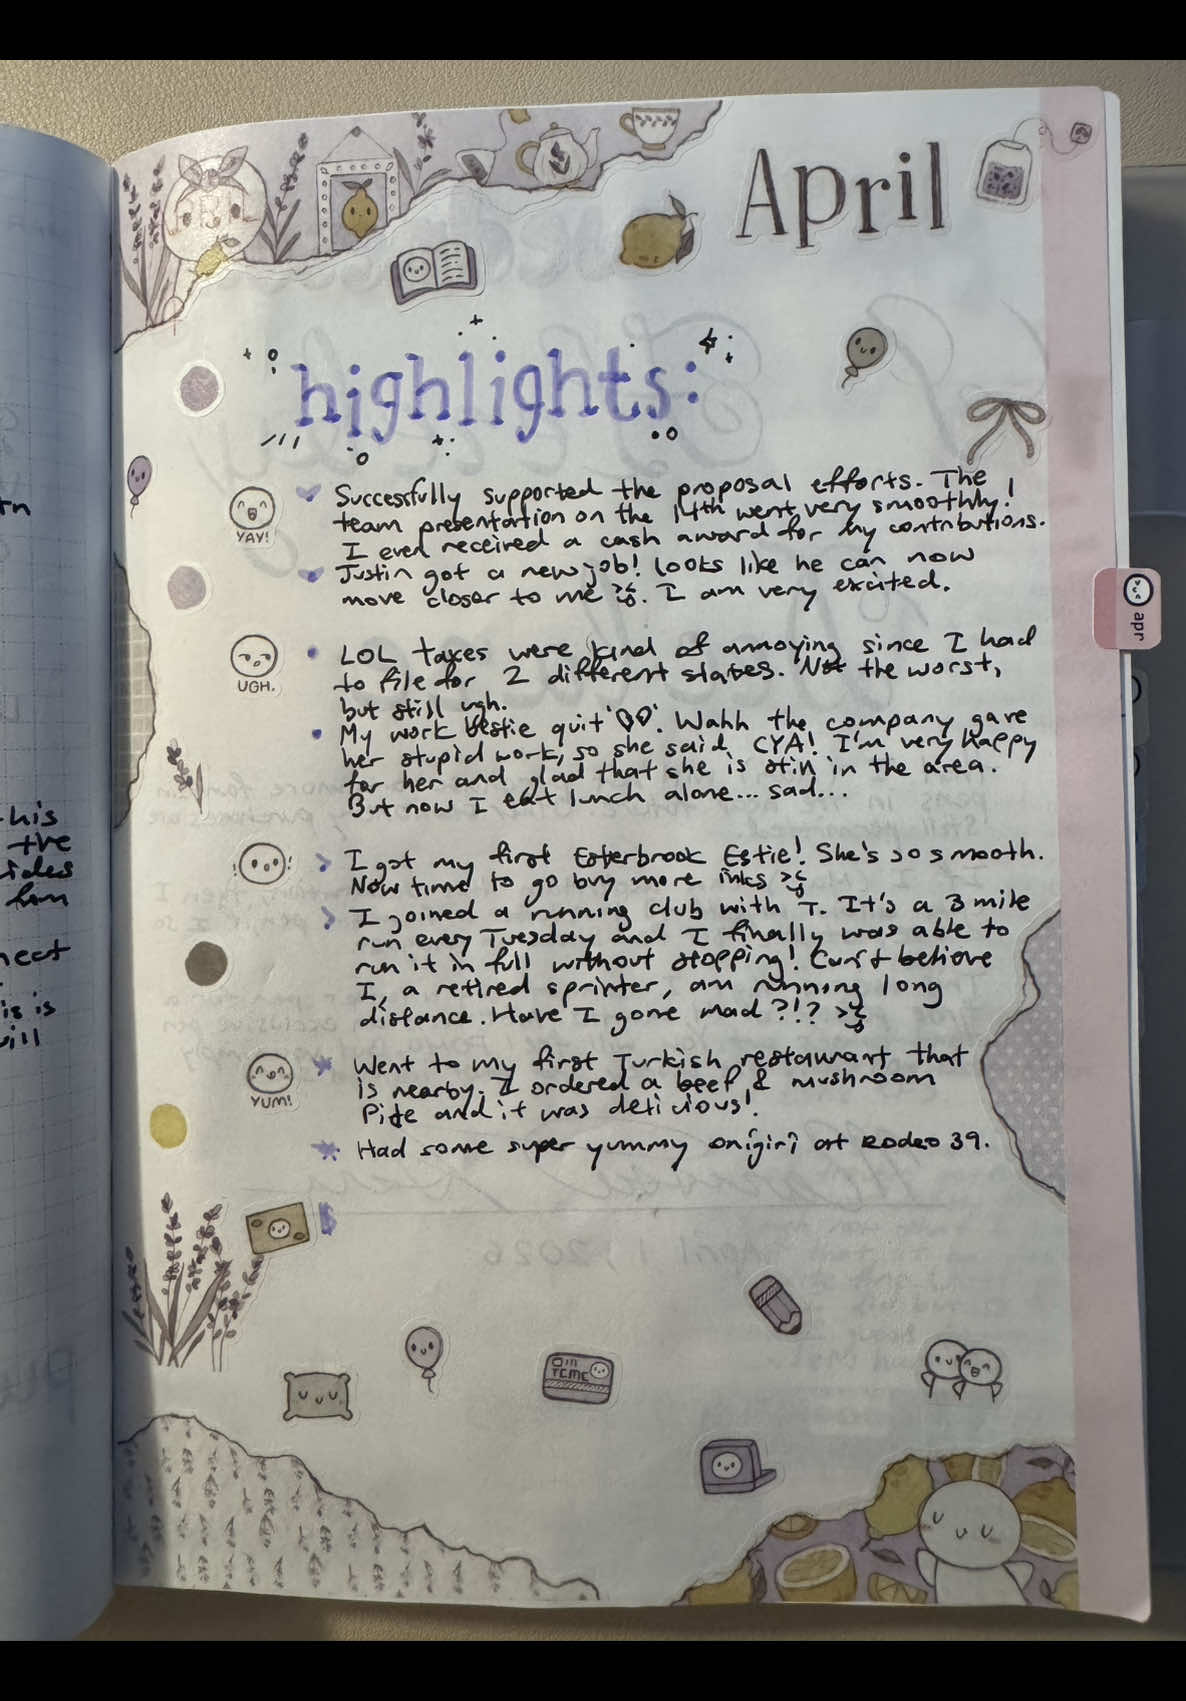 April
highlights:
Successfully supported the proposal efforts. The
team presentation on the 14th went very smoothly!
I even received a cash award for my contributions.
YAY!
Justin got a new job! looks like he can now
move closer to me. I am very excited.
LOL taxes were kind of annoying since I had
to file for 2 different states. Not the worst,
but still ugh.
UGH.
My work bestie quit. Wahh the company gave
her stupid work, so she said, CYA! I'm very happy
for her and glad that she is still in the area.
But now I eat lunch alone... sad...
I got my first Esterbrook Estie! She's so smooth.
Now time to go buy more inks
I joined a running club with T. It's a 3 mile
run every Tuesday and I finally was able to
run it in full without stopping! Can't believe
I, a retired sprinter, am running long
distance. Have I gone mad?!?
Went to my first Turkish restaurant that
is nearby. I ordered a beef & mushroom
Pide and it was delicious!
YUM!
Had some super yummy onigiri at Rodeo 39.
apr
his
the
ides
is is